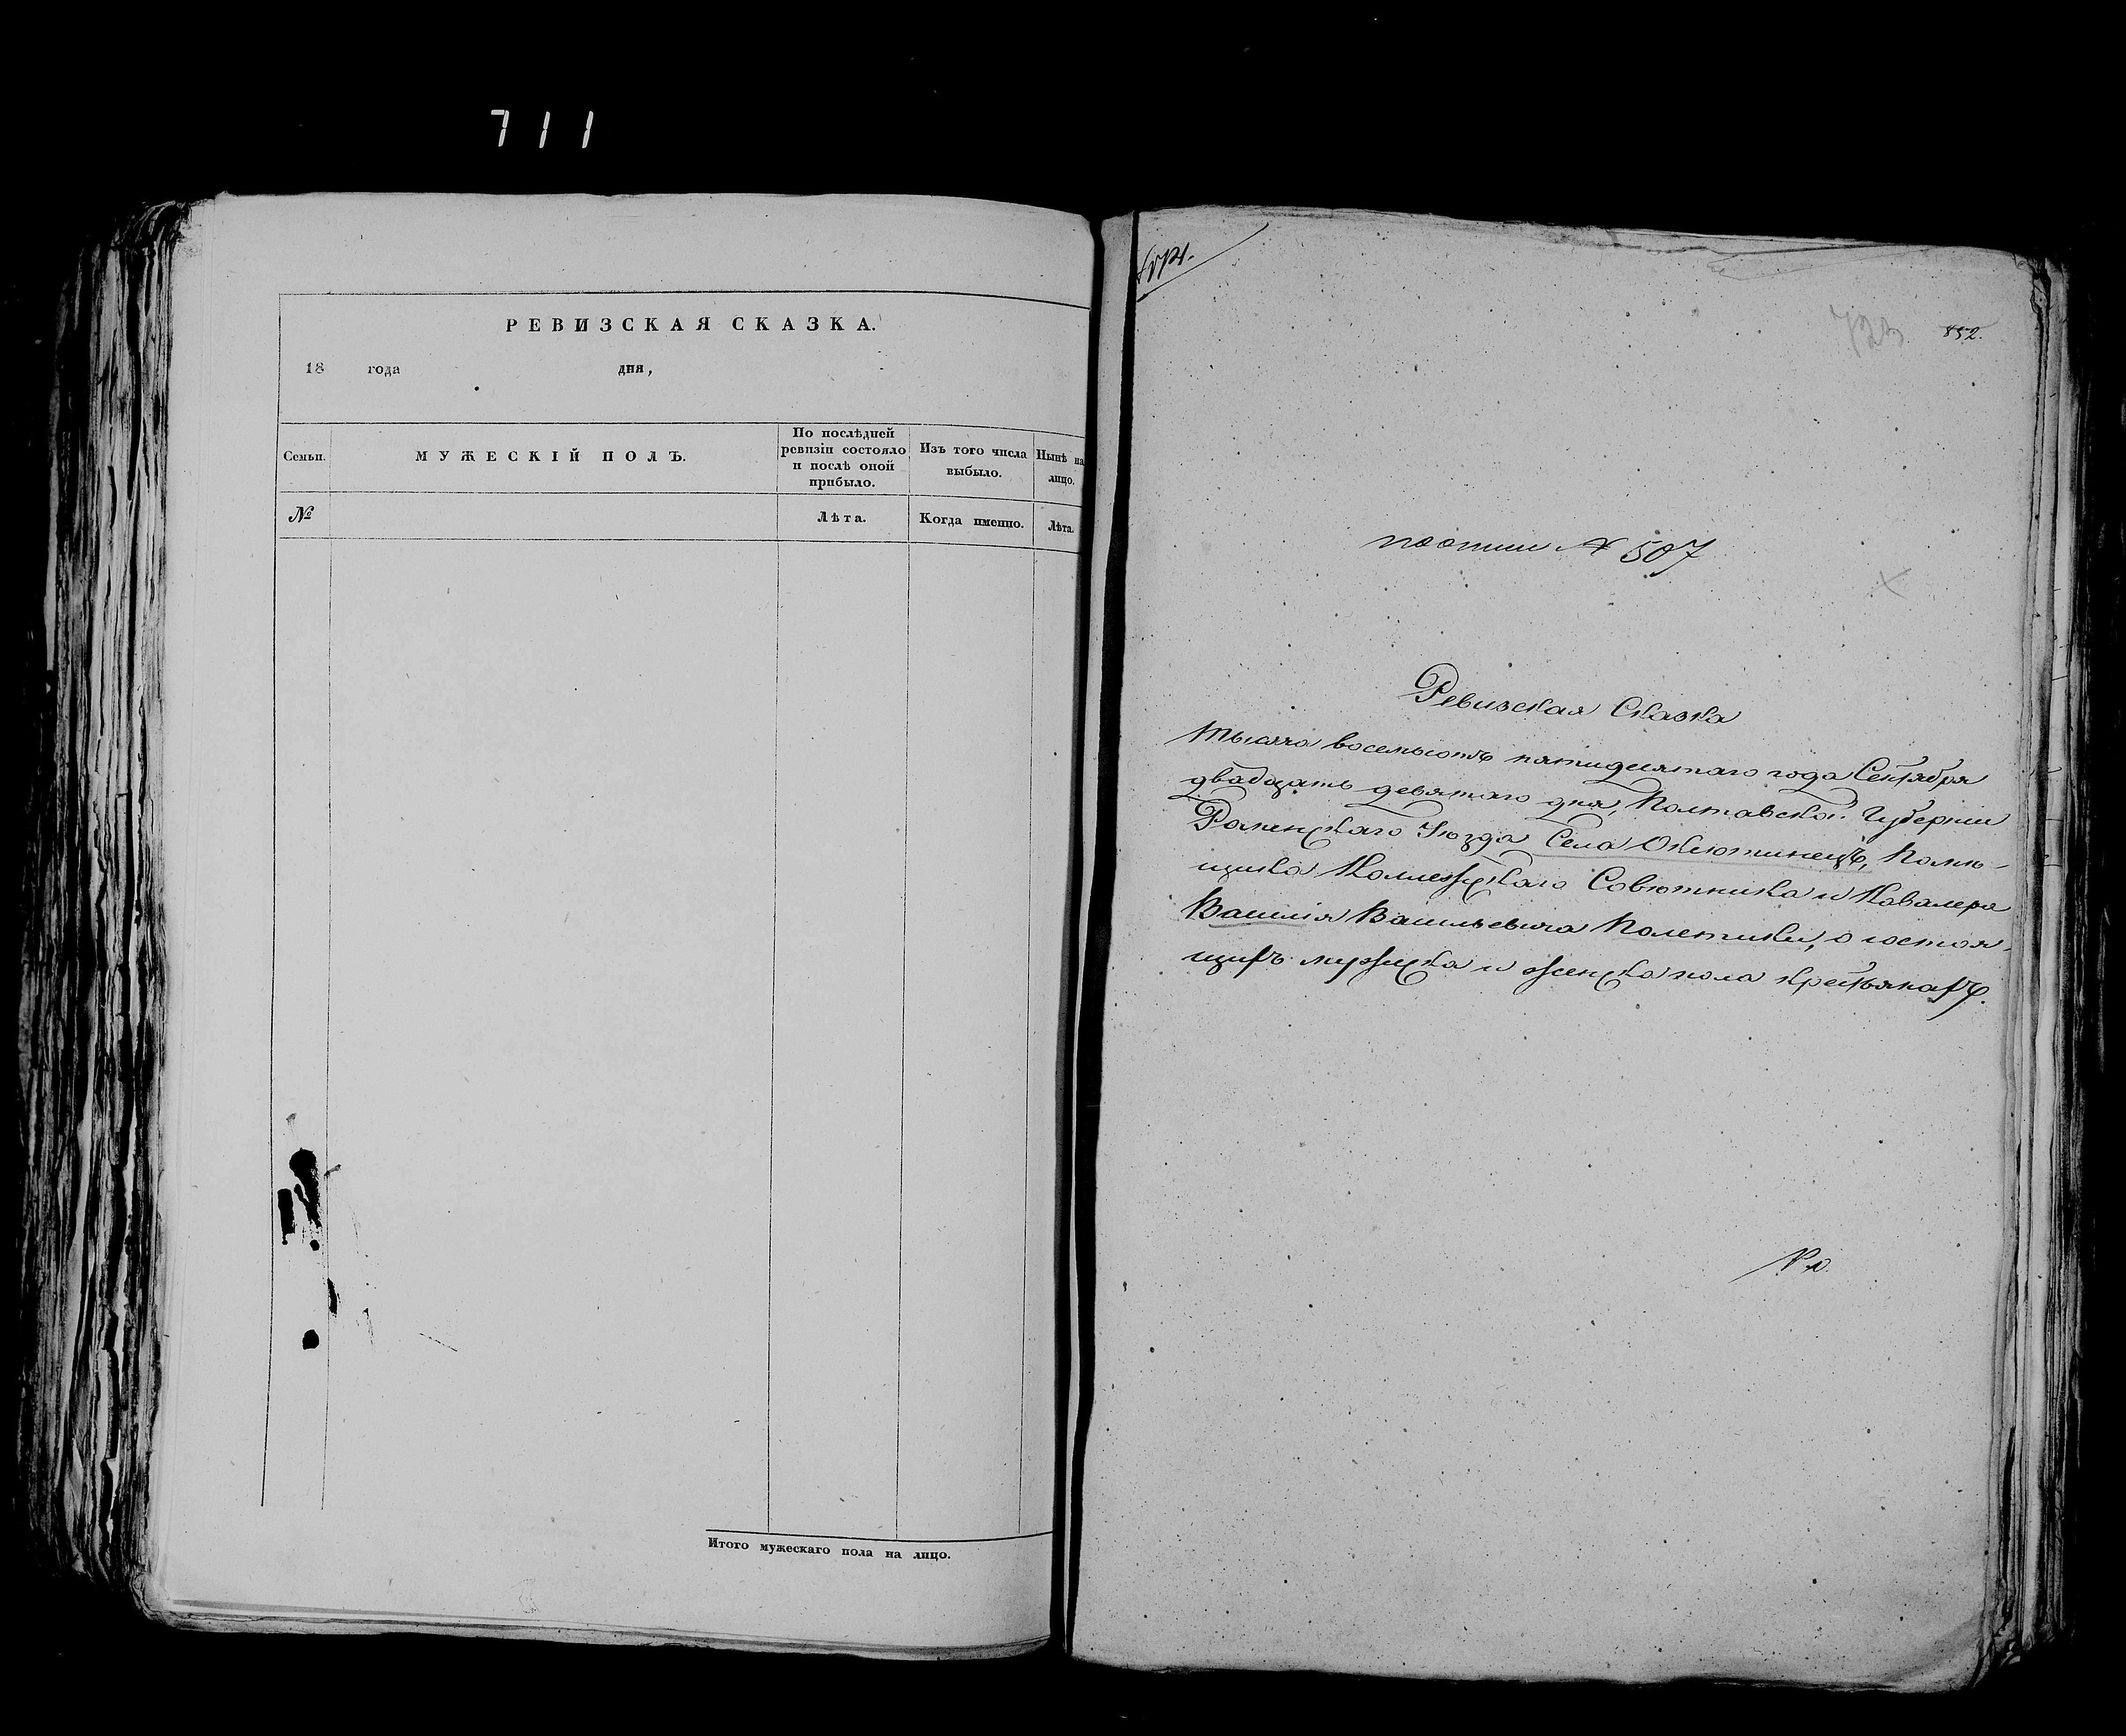 711
РЕВИЗСКАЯ СКАЗКА.
18 года дня,
Семьи.
МУЖЕСКІЙ ПОЛЪ.
По послѣдней
ревизіи состояло
и послѣ оной
прибыло.
Изъ того числа
выбыло.
Нынѣ на
лицо.
№
Лѣта.
Когда именно.
Лѣта.
Итого мужескаго пола на лицо.
723
852.
№ 507
Ревизская Сказка
тысяча восемьсотъ пятидесятаго года Сентября
двадцать девятаго дня, Полтавской Губерніи
Роменскаго Уѣзда Села Оксютинецъ, Помѣ-
щика Коллежскаго Совѣтника и Кавалера
Василія Васильевича Полетики, о состоя-
щихъ мужеска и женска пола крестьянахъ.